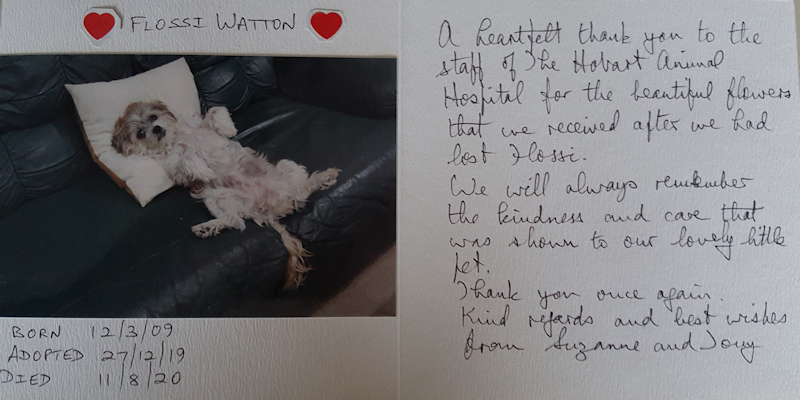 FLOSSI WATTON
BORN 12/3/09
ADOPTED 27/12/19
DIED 11/8/20
A heartfelt thank you to the
staff of The Hobart Animal
Hospital for the beautiful flowers
that we received after we had
lost Flossi.
We will always remember
the kindness and care that
was shown to our lovely little
pet.
Thank you once again.
Kind regards and best wishes
from Suzanne and Tony